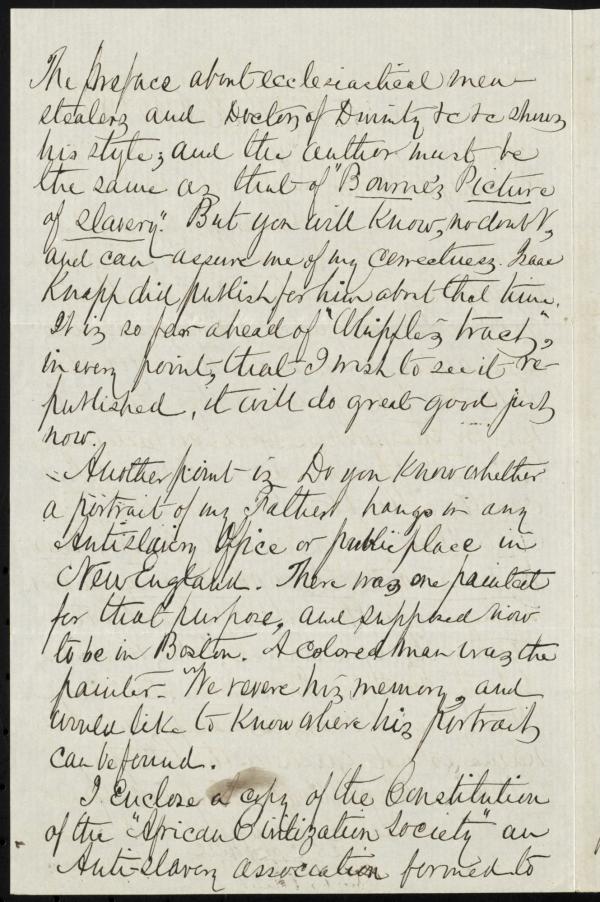 The preface about ecclesiastical men-
stealers and Doctors of Divinity &c &c shows
his style; and the author must be
the same as that of "Bourne's Picture
of slavery." But you will know, no doubt,
and can assure me of my correctness. Isaac
Knapp did publish for him about that time.
It is so far ahead of "Whipple's tract",
in every point, that I wish to see it re-
published, it will do great good just
now.
Another point is Do you know whether
a portrait of my Father hangs in any
Antislavery Office or public place in
New England. There was one painted
for that purpose, and supposed now
to be in Boston. A colored man was the
painter. We revere his memory, and
would like to know where his portrait
can be found.
I enclose a copy of the Constitution
of the "African Civilization Society" an
Anti-slavery association formed to